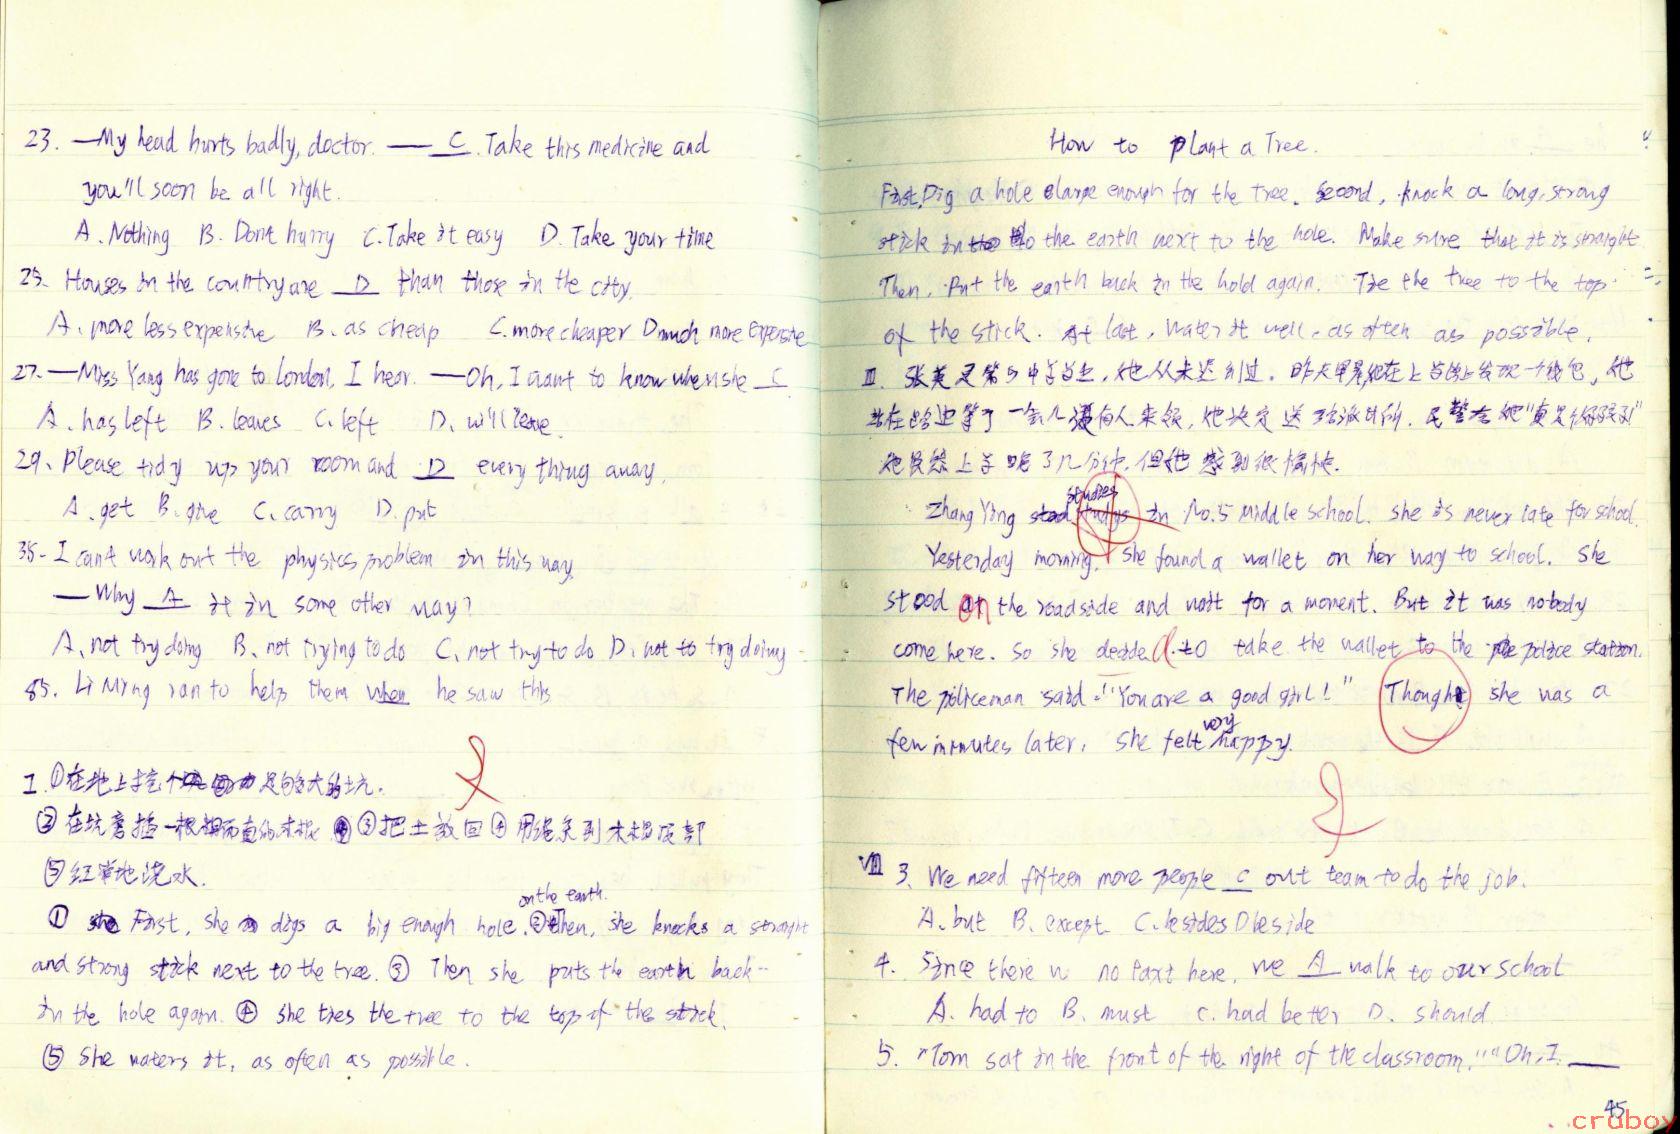 23. —My head hurts badly, doctor. — C. Take this medicine and
you'll soon be all right.
A. Nothing B. Dont hurry C. Take it easy D. Take your time
25. Houses in the country are D than those in the city.
A. more less expensive B. as cheap C. more cheaper D much more expensive
27. —Miss Yang has gone to London, I hear. —Oh, I want to know when she C
A. has left B. leaves C. left D. will leave.
29. Please tidy up your room and D every thing away.
A. get B. give C. carry D. put
35. I cant work out the physics problem in this way.
—Why A it in some other way?
A. not try doing B. not trying to do C. not try to do D. not to try doing
85. Li Ming ran to help them when he saw this
I. ①在地上挖个足够大的坑.
②在坑旁插一根直的木棍 ③把土放回 ④用绳系到木棍顶部
⑤经常地浇水.
on the earth.
① First, she digs a big enough hole. ② Then, she knocks a straight
and strong stick next to the tree. ③ Then she puts the earth back
in the hole again. ④ she ties the tree to the top of the stick.
⑤ She waters it, as often as possible.
How to plant a Tree.
First, Dig a hole large enough for the tree. Second, knock a long, strong
stick into the earth next to the hole. Make sure that it is straight
Then, Put the earth back in the hold again. Tie the tree to the top
of the stick. At last, water it well, as often as possible.
II. 张英是第5中学学生,她从未迟到过.昨天早晨她在上学路上发现一个钱包,她
站在路边等了一会儿没有人来领,她决定送给派出所.民警
她虽然上学晚了几分钟,但她感到很愉快.
studies
Zhang Ying in No.5 Middle School. She is never late for school.
Yesterday morning, she found a wallet on her way to school. She
stood on the roadside and wait for a moment. But it was nobody
come here. So she decided to take the wallet to the police station.
The policeman said: "You are a good girl!" Though she was a
very
few minutes later, she felt happy.
VIII 3. We need fifteen more people C out team to do the job.
A. but B. except C. besides D beside
4. Since there is no taxi here, we A walk to our school
A. had to B. must C. had better D. should
5. "Tom sat in the front of the right of the classroom." "Oh, I.
45
cruboy